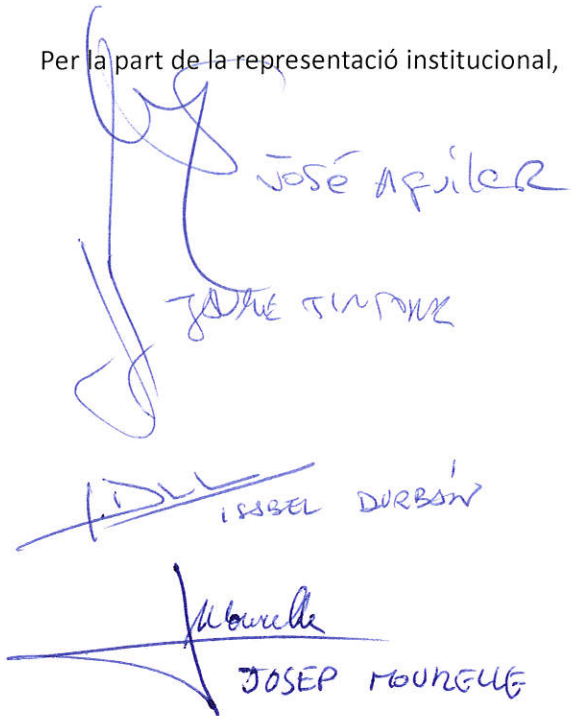 Per la part de la representació institucional,
José Aguilar
JAUME TINTORÉ
ISABEL DURBÁN
Mourelle
JOSEP MOURELLE